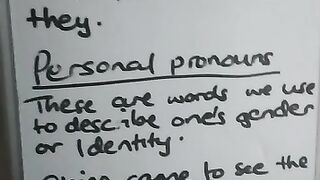 they.
Personal pronouns
These are words we use
to describe one's gender
or Identity.
came to see the